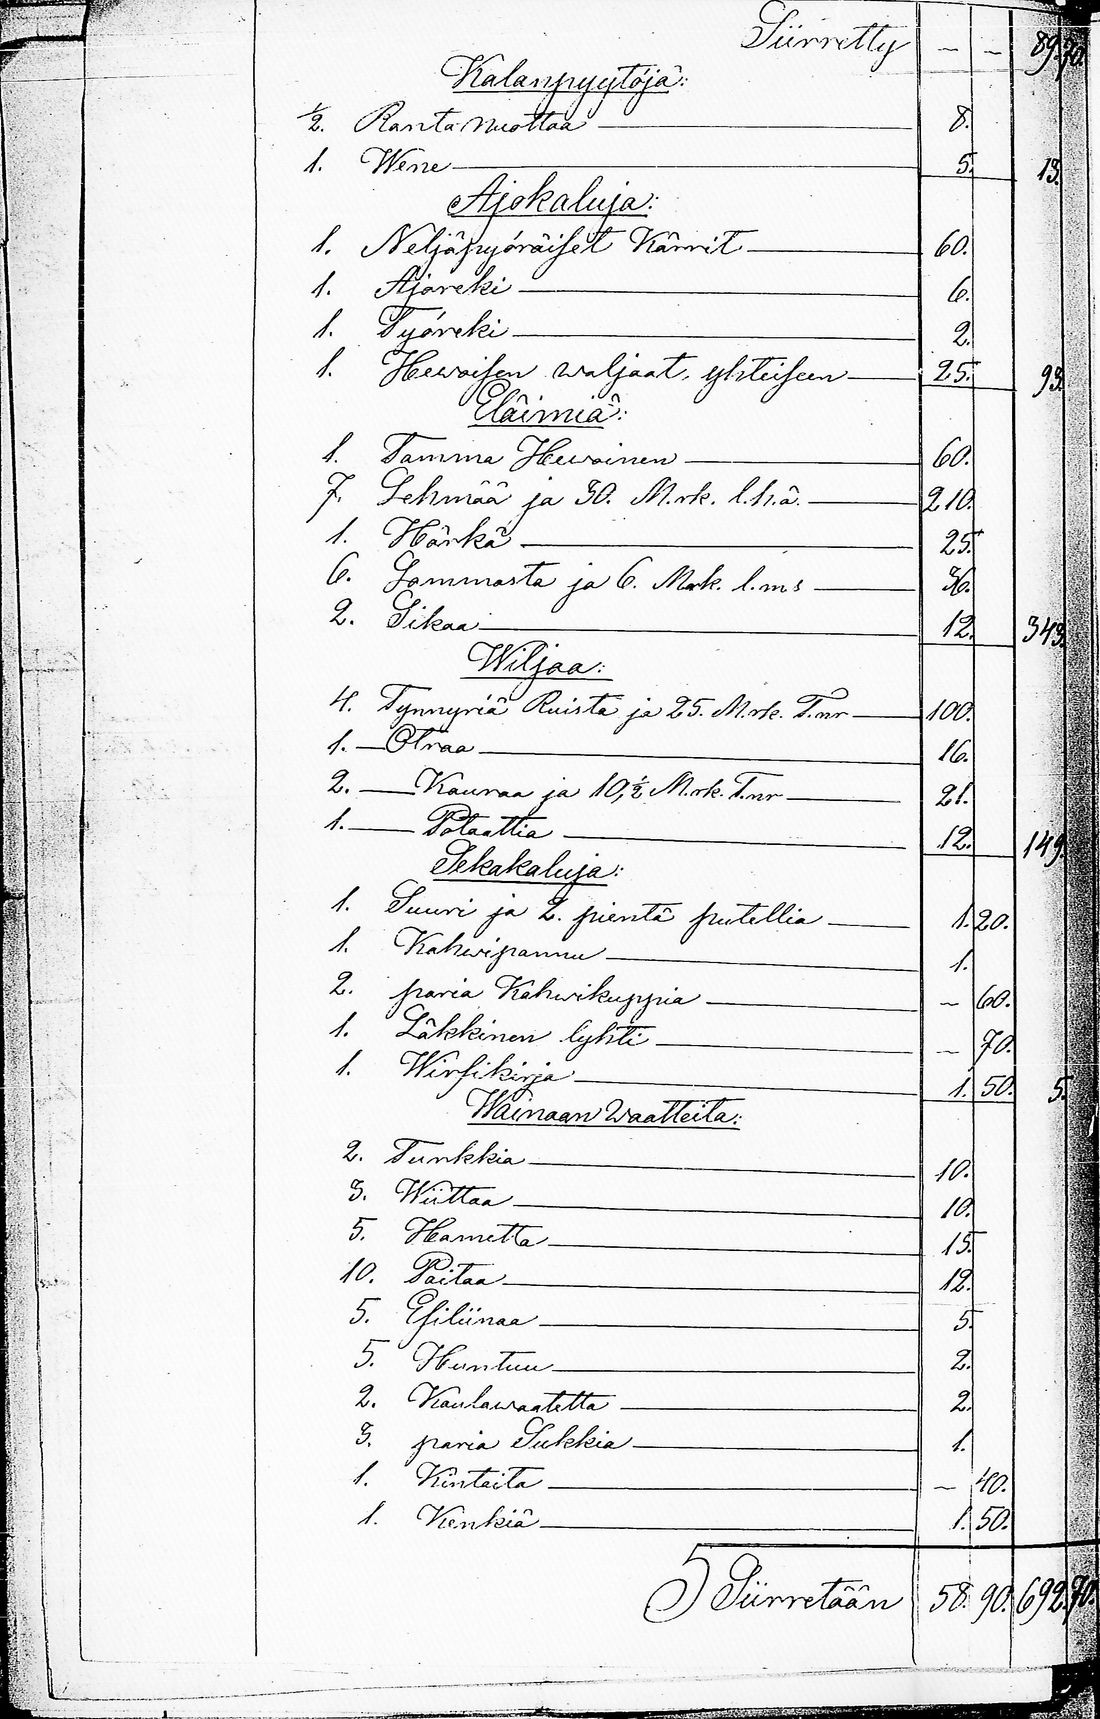 Siirretty — — 89. 70.
Kalanpyytöjä:
½. Ranta nuottaa 8.
1. Wene 5. 13.
Ajokaluja:
1. Neljäpyöräiset Kärrit 60.
1. Ajoreki 6.
1. Työreki 2.
1. Hewoisen waljaat, yhteiseen 25. 93.
Eläimiä:
1. Tamma Hewoinen 60.
7. Lehmää ja 30. Mrk. l.h.ä. 210.
1. Härkä 25.
6. Lammasta ja 6. Mrk. l.m.s 36.
2. Sikaa 12. 343.
Wiljaa:
4. Tynnyriä Ruista ja 25. Mrk. Tnr 100.
1. — Ohraa 16.
2. — Kauraa ja 10,½ Mrk. Tnr 21.
1. — Potaattia 12. 149.
Sekakaluja:
1. Suuri ja 2. pientä putellia 1. 20.
1. Kahwipannu 1.
2. paria Kahwikuppia — 60.
1. Läkkinen lyhti — 70.
1. Wirsikirja 1. 50. 5.
Wainaan Waatteita:
2. Turkkia 10.
3. Wiittaa 10.
5. Hametta 15.
10. Paitaa 12.
5. Esiliinaa 5.
5. Huntuu 2.
2. Kaulawaatetta 2.
3. paria Sukkia 1.
1. Kintaita — 40.
1. Kenkiä 1. 50.
Siirretään 58. 90. 692. 70.